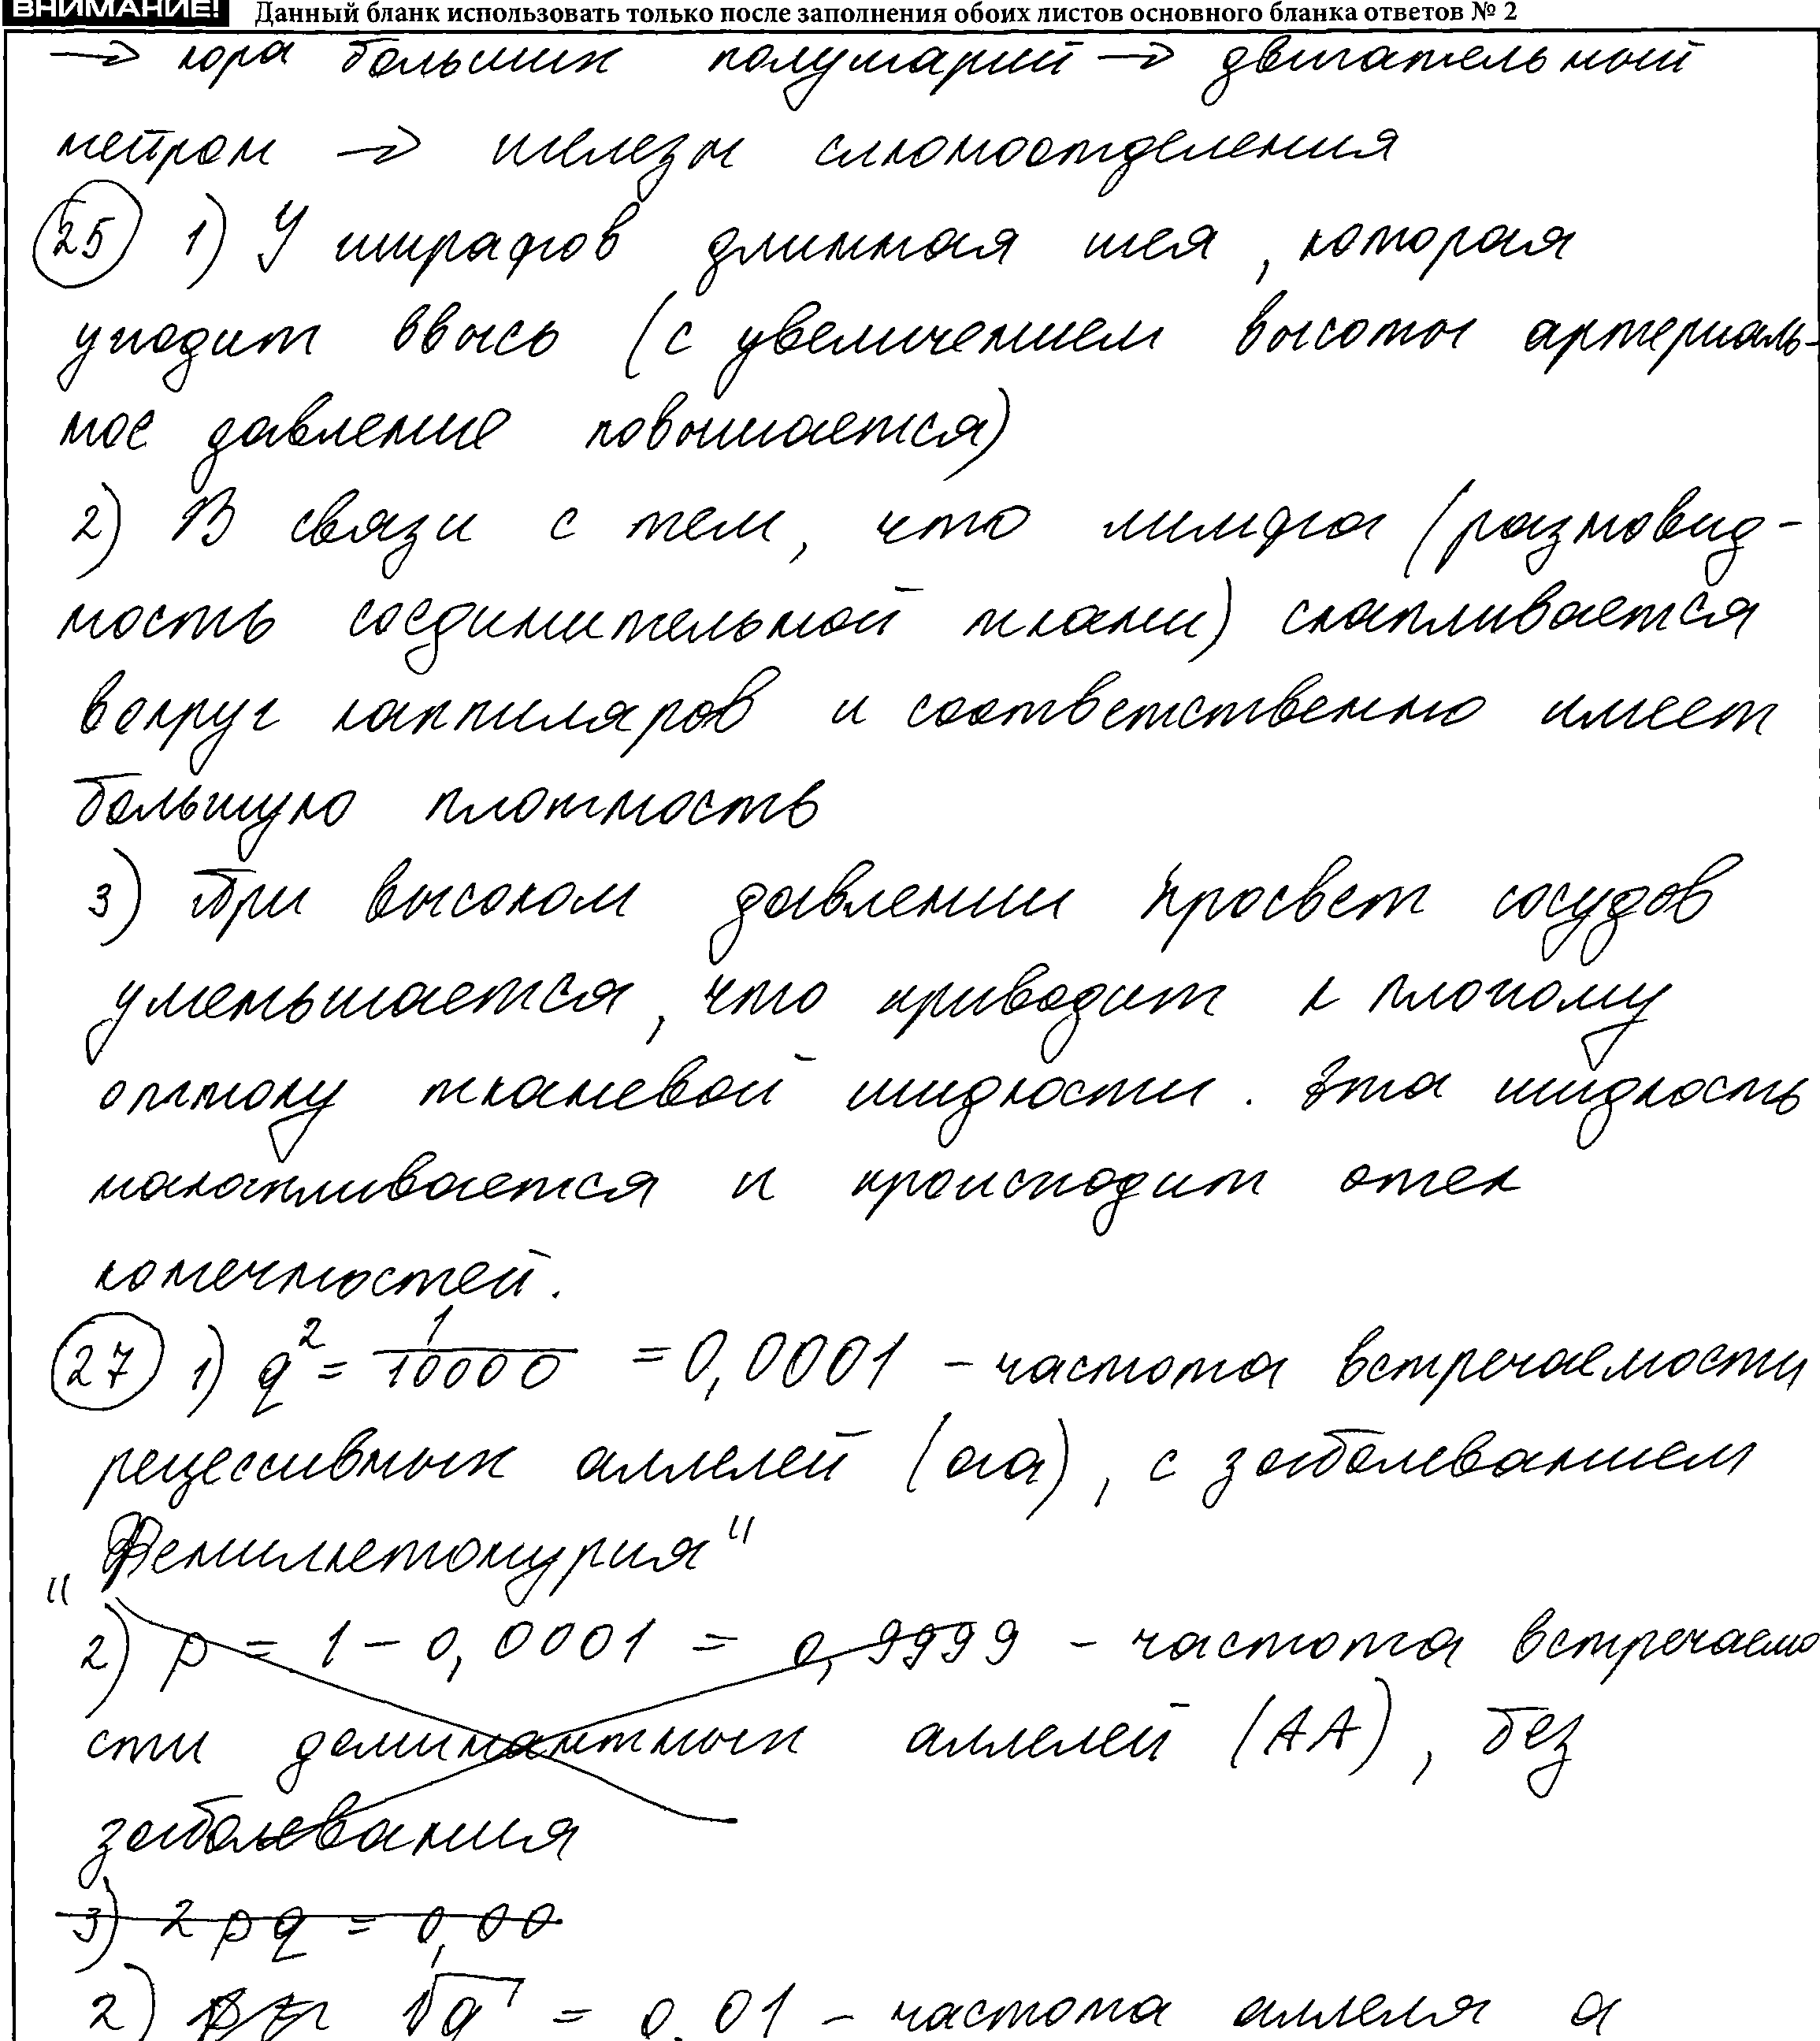 ВНИМАНИЕ! Данный бланк использовать только после заполнения обоих листов основного бланка ответов № 2
→ кора больших полушарий → двигательный
нейрон → железы слюноотделения
25 1) У жирафов длинная шея, которая
уходит ввысь (с увеличением высоты артериаль-
ное давление повышается)
2) В связи с тем, что лимфа (разновид-
ность соединительной ткани) скапливается
вокруг каппиляров и соответственно имеет
большую плотность
3) При высоком давлении просвет сосудов
уменьшается, что приводит к плохому
оттоку тканевой жидкости. Эта жидкость
накапливается и происходит отек
конечностей.
27 1) q² = 1/10000 = 0,0001 – частота встречаемости
рецессивных аллелей (аа), с заболеванием
"Фенилкетонурия"
2) p = 1 – 0,0001 = 0,9999 – частота встречаемо
сти доминантных аллелей (АА), без
заболевания
3) 2pq = 0,00
2) √q = 0,01 – частота аллеля а